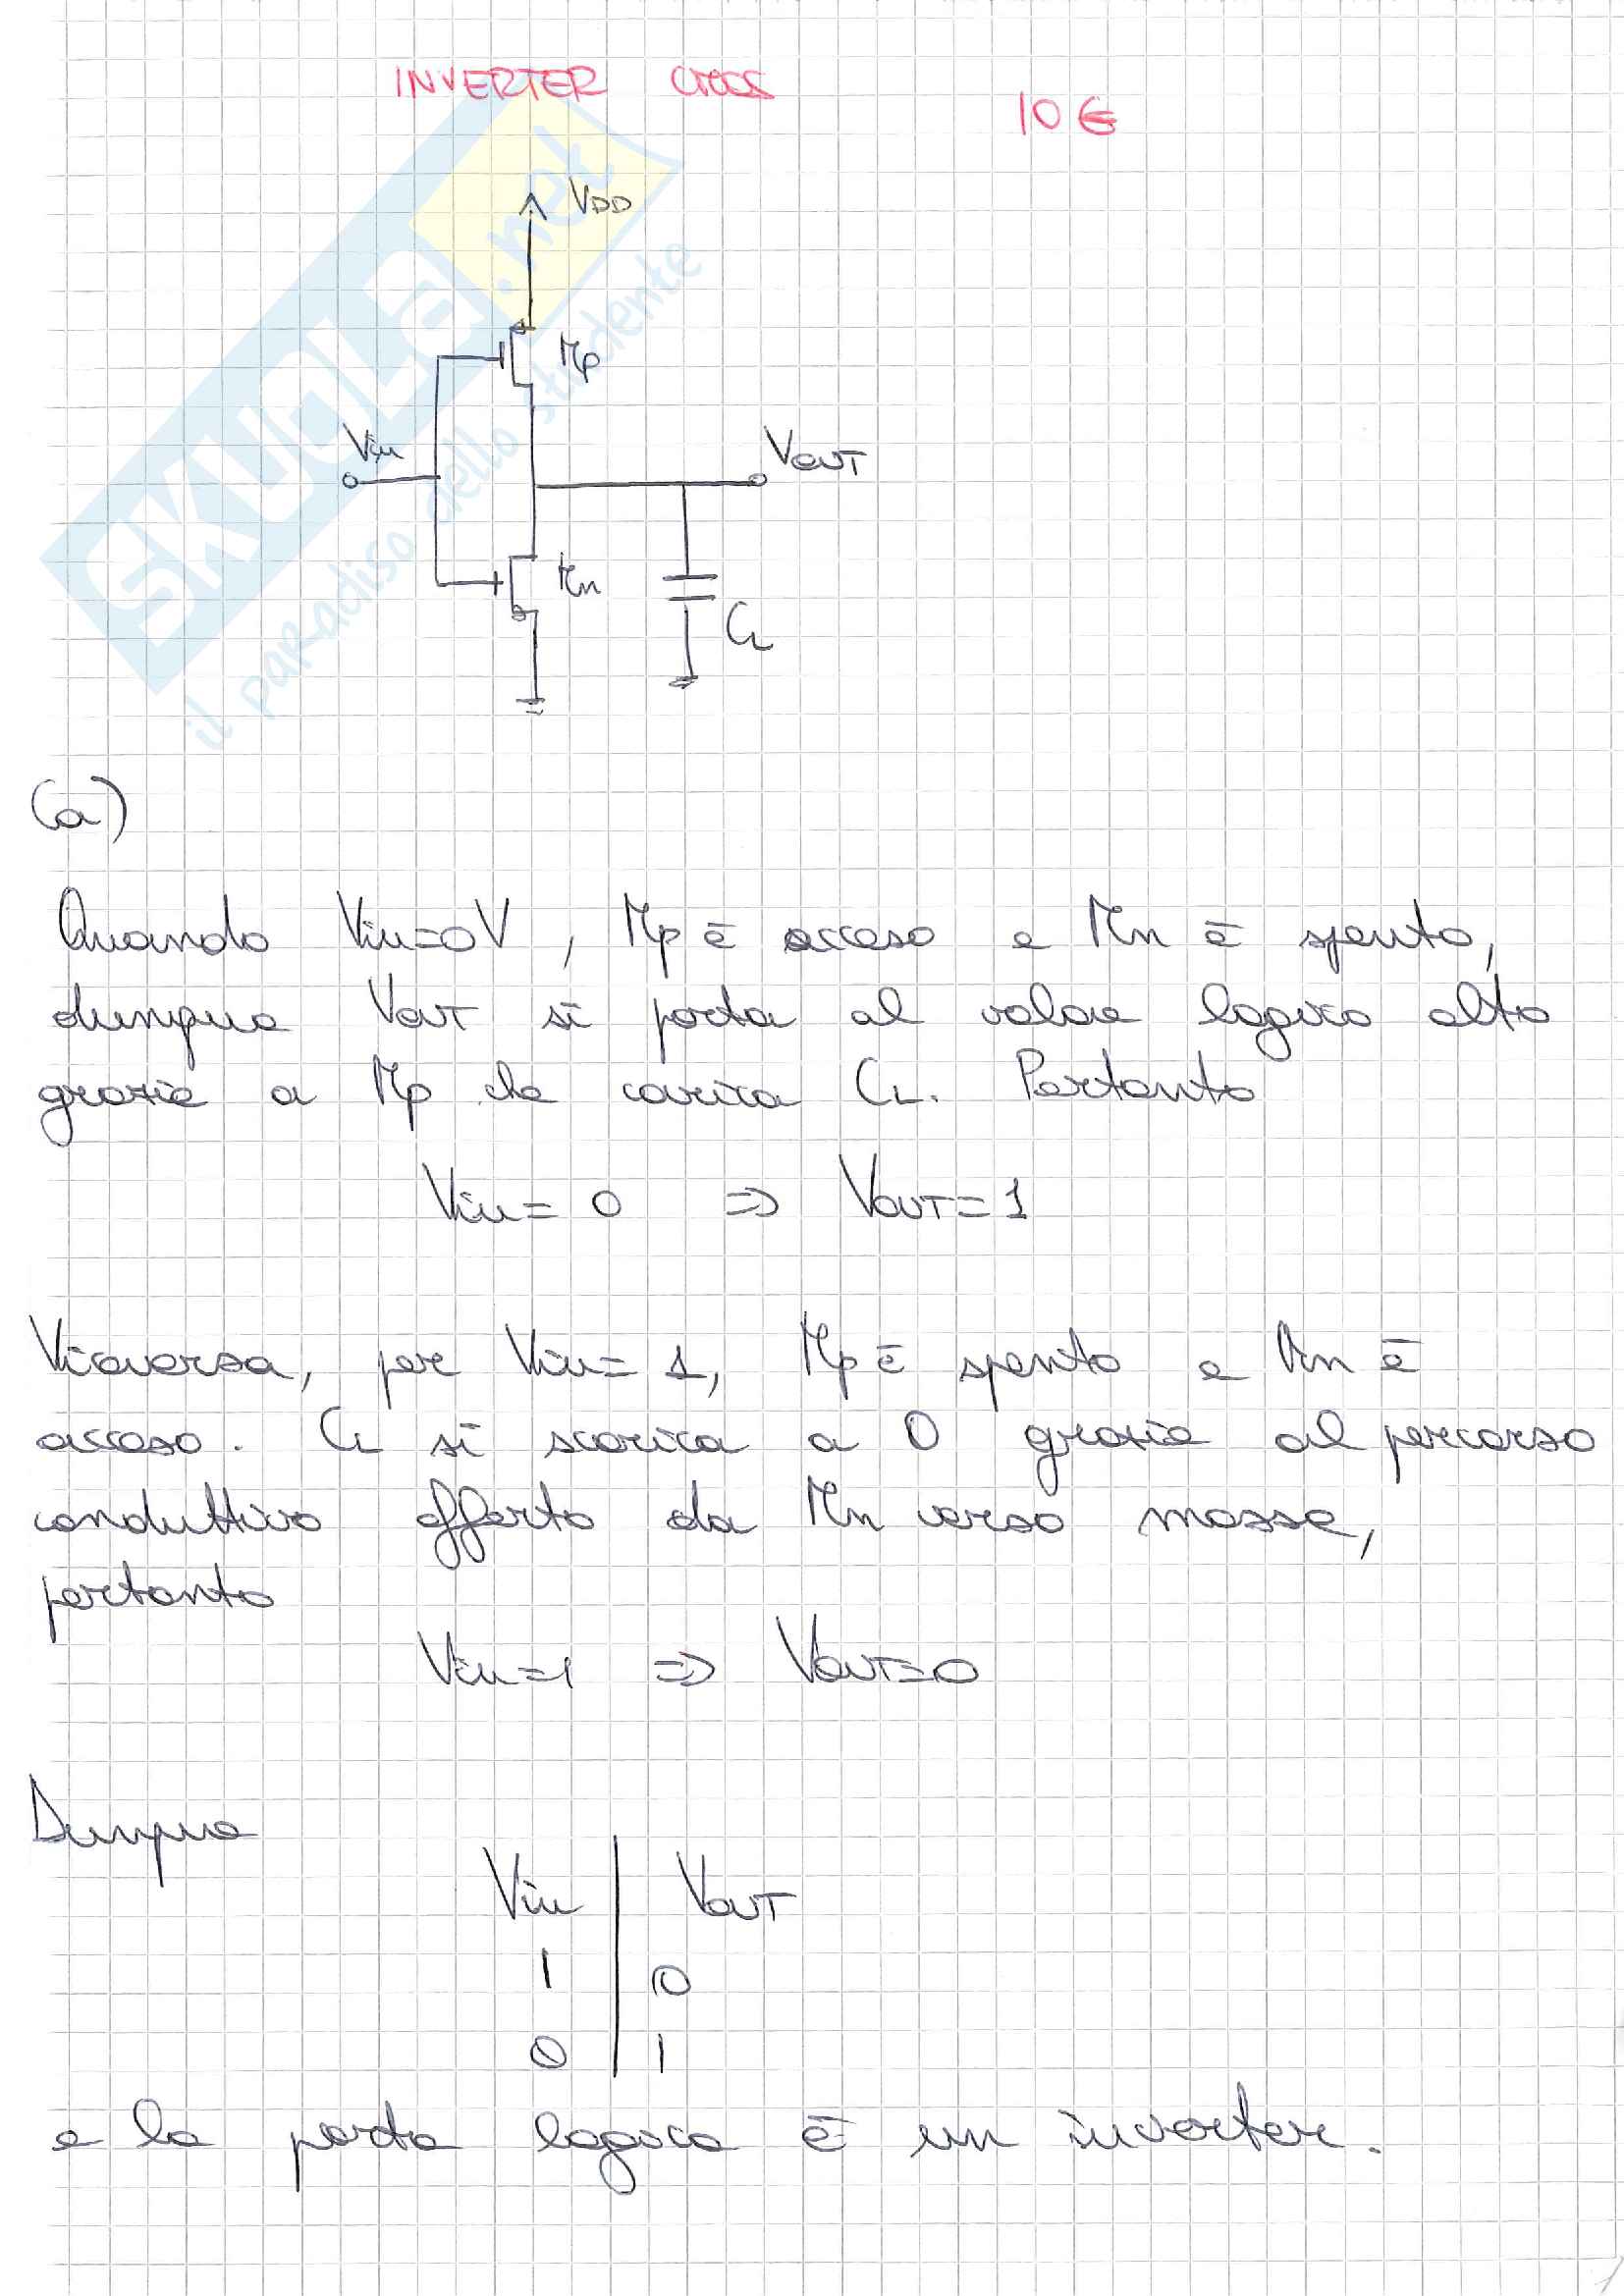 INVERTER CMOS
10€
VDD
Mp
Vin
VOUT
Mn
CL
SKUOLA.net
il paradiso dello studente
(a)
Quando Vin=0V, Mp è acceso e Mn è spento,
dunque VOUT si porta al valore logico alto
grazie a Mp che carica CL. Pertanto
Vin= 0 => VOUT=1
Viceversa, per Vin= 1, Mp è spento e Mn è
acceso. CL si scarica a 0 grazie al percorso
conduttivo offerto da Mn verso massa,
pertanto
Vin=1 => VOUT=0
Dunque
Vin | VOUT
1 | 0
0 | 1
e la porta logica è un inverter.
1